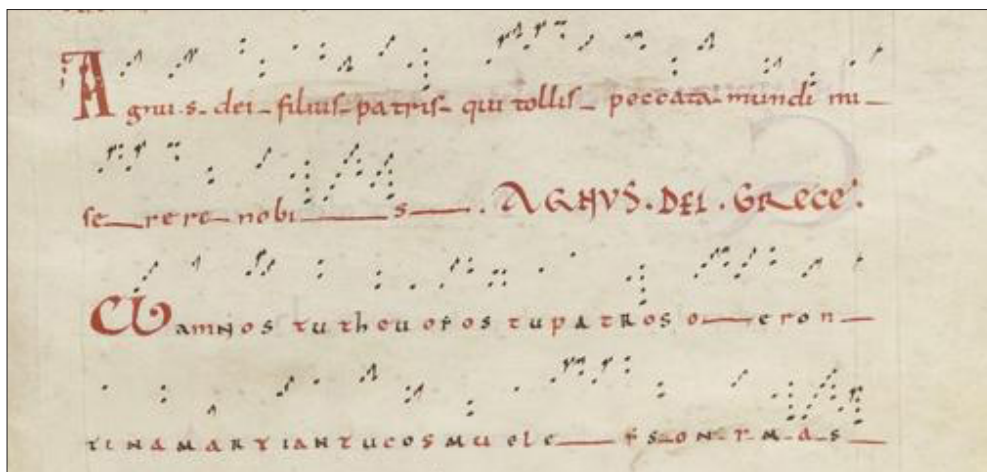 Agnus dei filius patris qui tollis peccata mundi mi
serere nobis. AGNVS. DEI. GRECE.
O amnos tu theu o yos tu patros o eron
tin amartian tu cosmu ele_ys on ymas